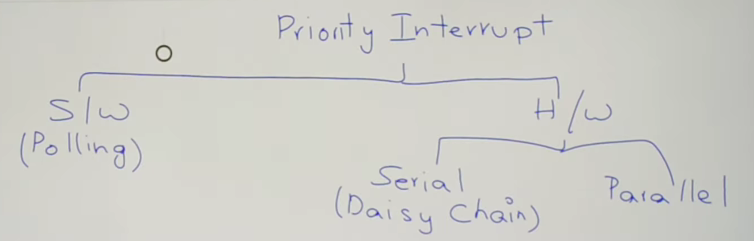 Priority Interrupt
S/W
(Polling)
H/W
Serial
(Daisy Chain)
Parallel